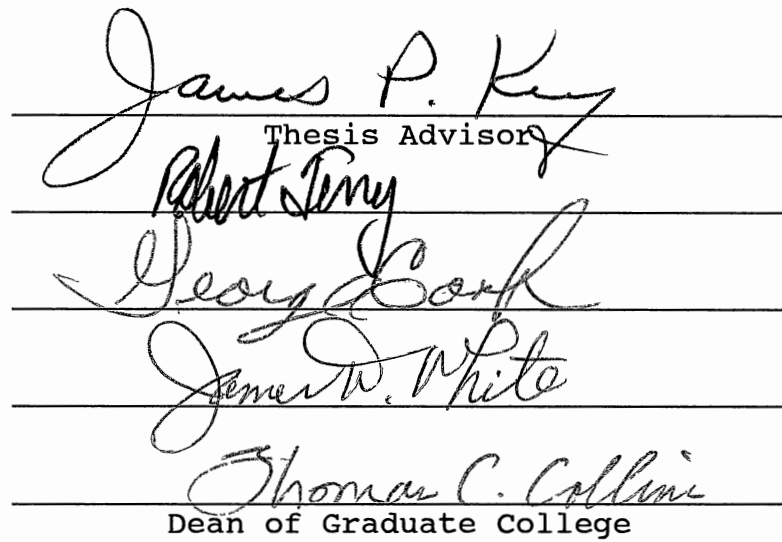 James P. Key
Thesis Advisor
Robert Terry
James D. White
Thomas C. Collins
Dean of Graduate College